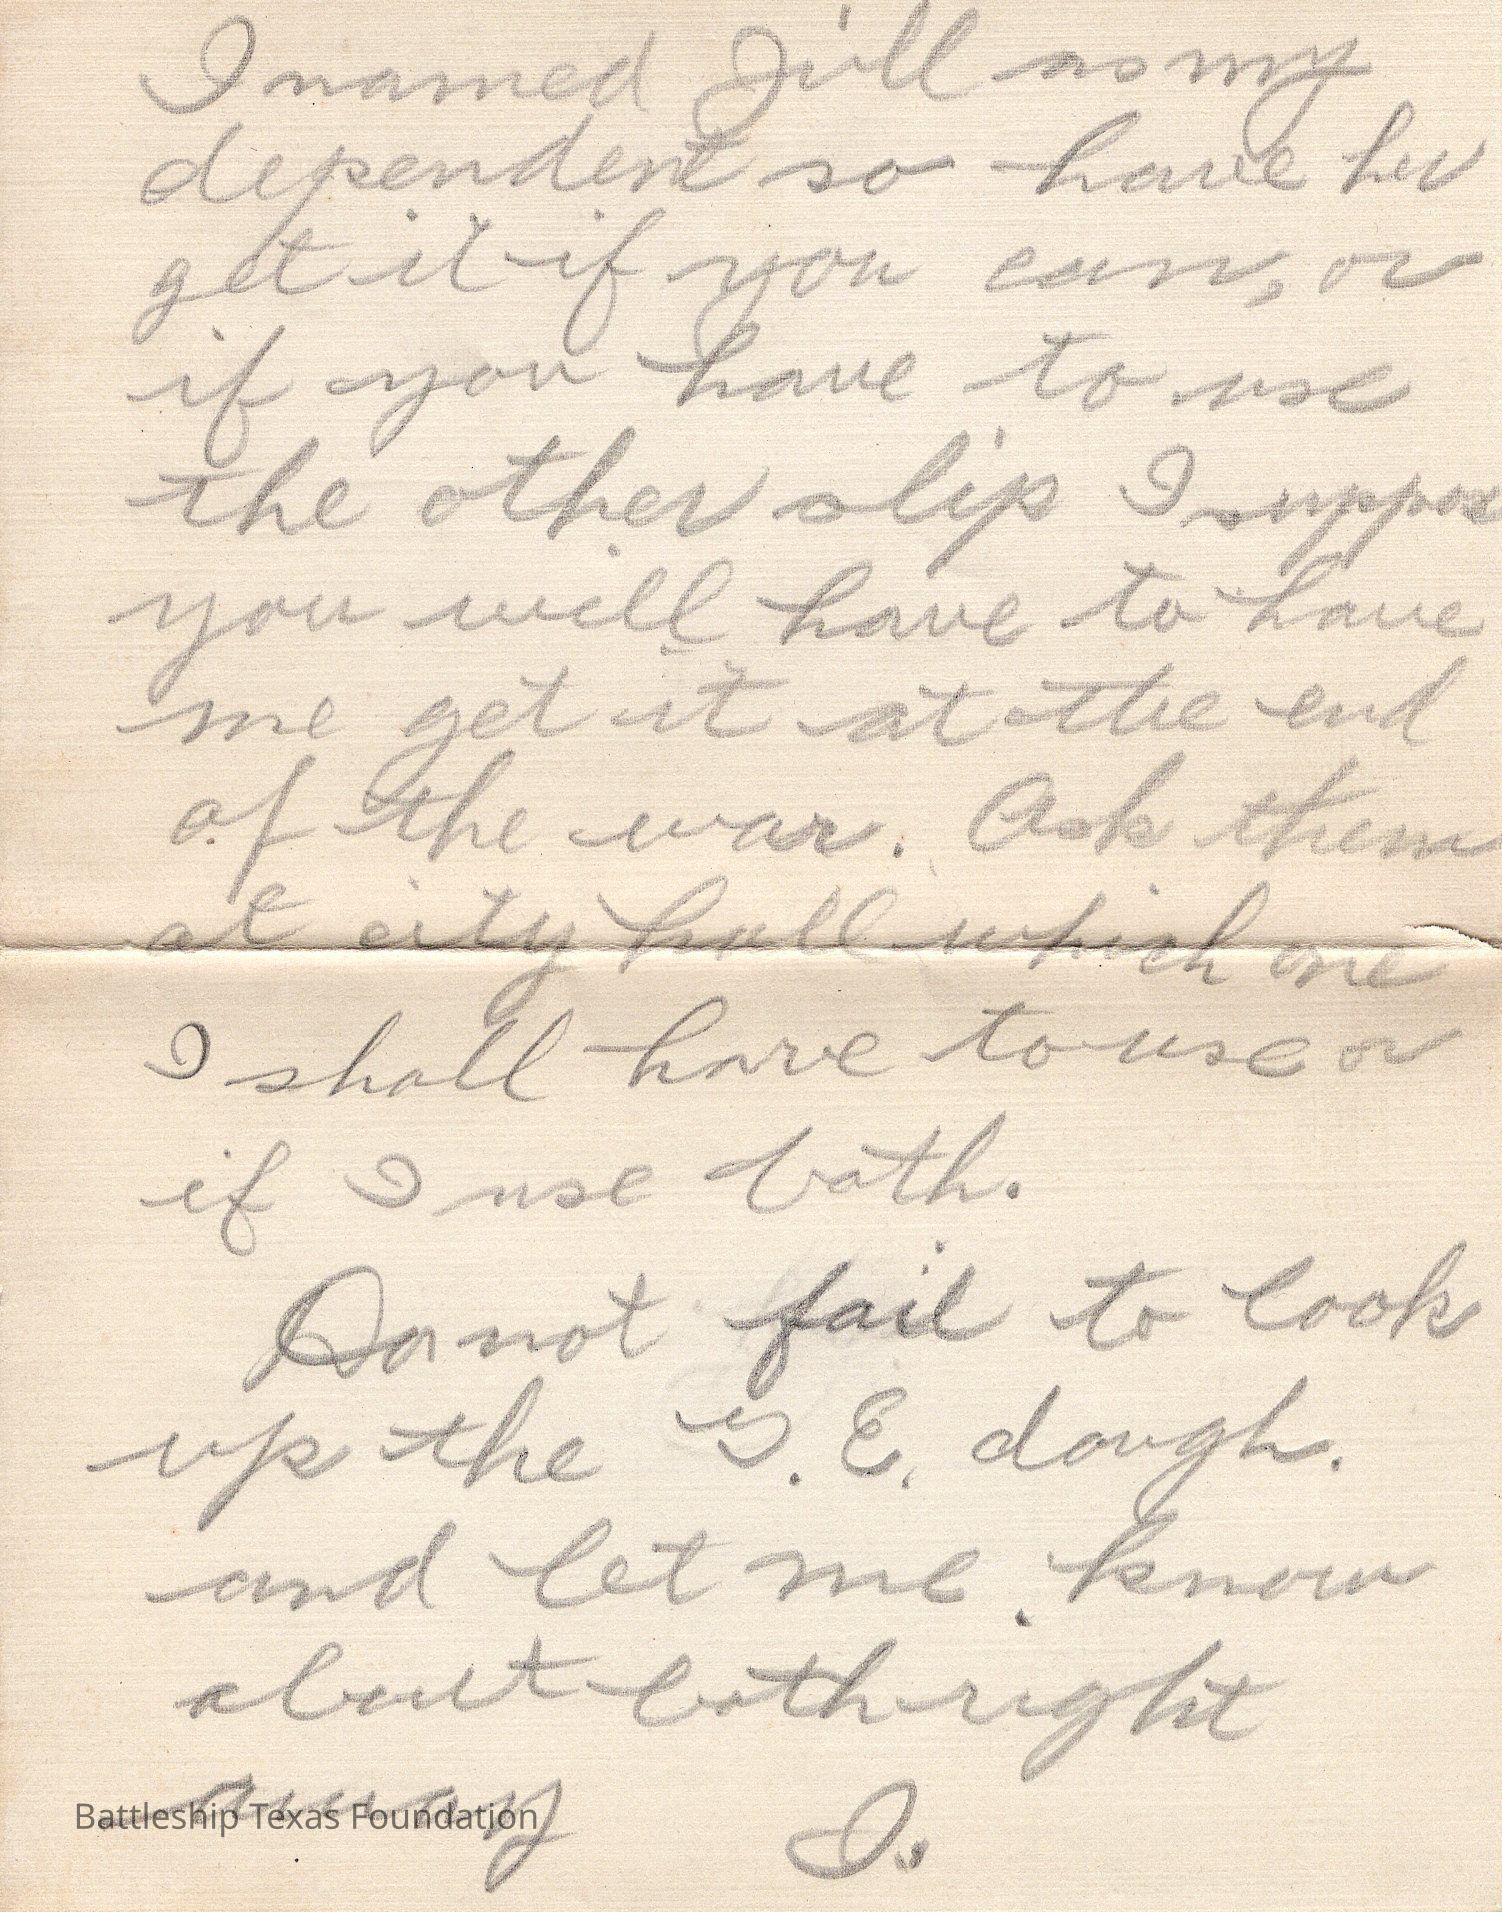 I named Jill as my
dependent so have her
get it if you can, or
if you have to use
the other slip I suppose
you will have to have
me get it at the end
of the war. Ask them
at city hall which one
I shall have to use or
if I use both.
Do not fail to look
up the G. E. dough.
and let me know
about both right
away
Battleship Texas Foundation